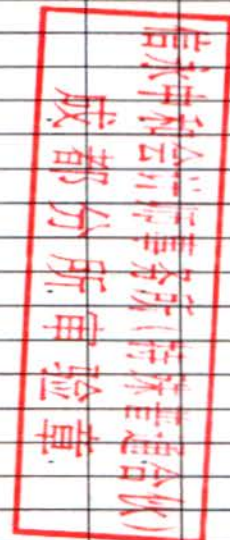 信永中和会计师事务所(特殊普通合伙)
成都分所审验章